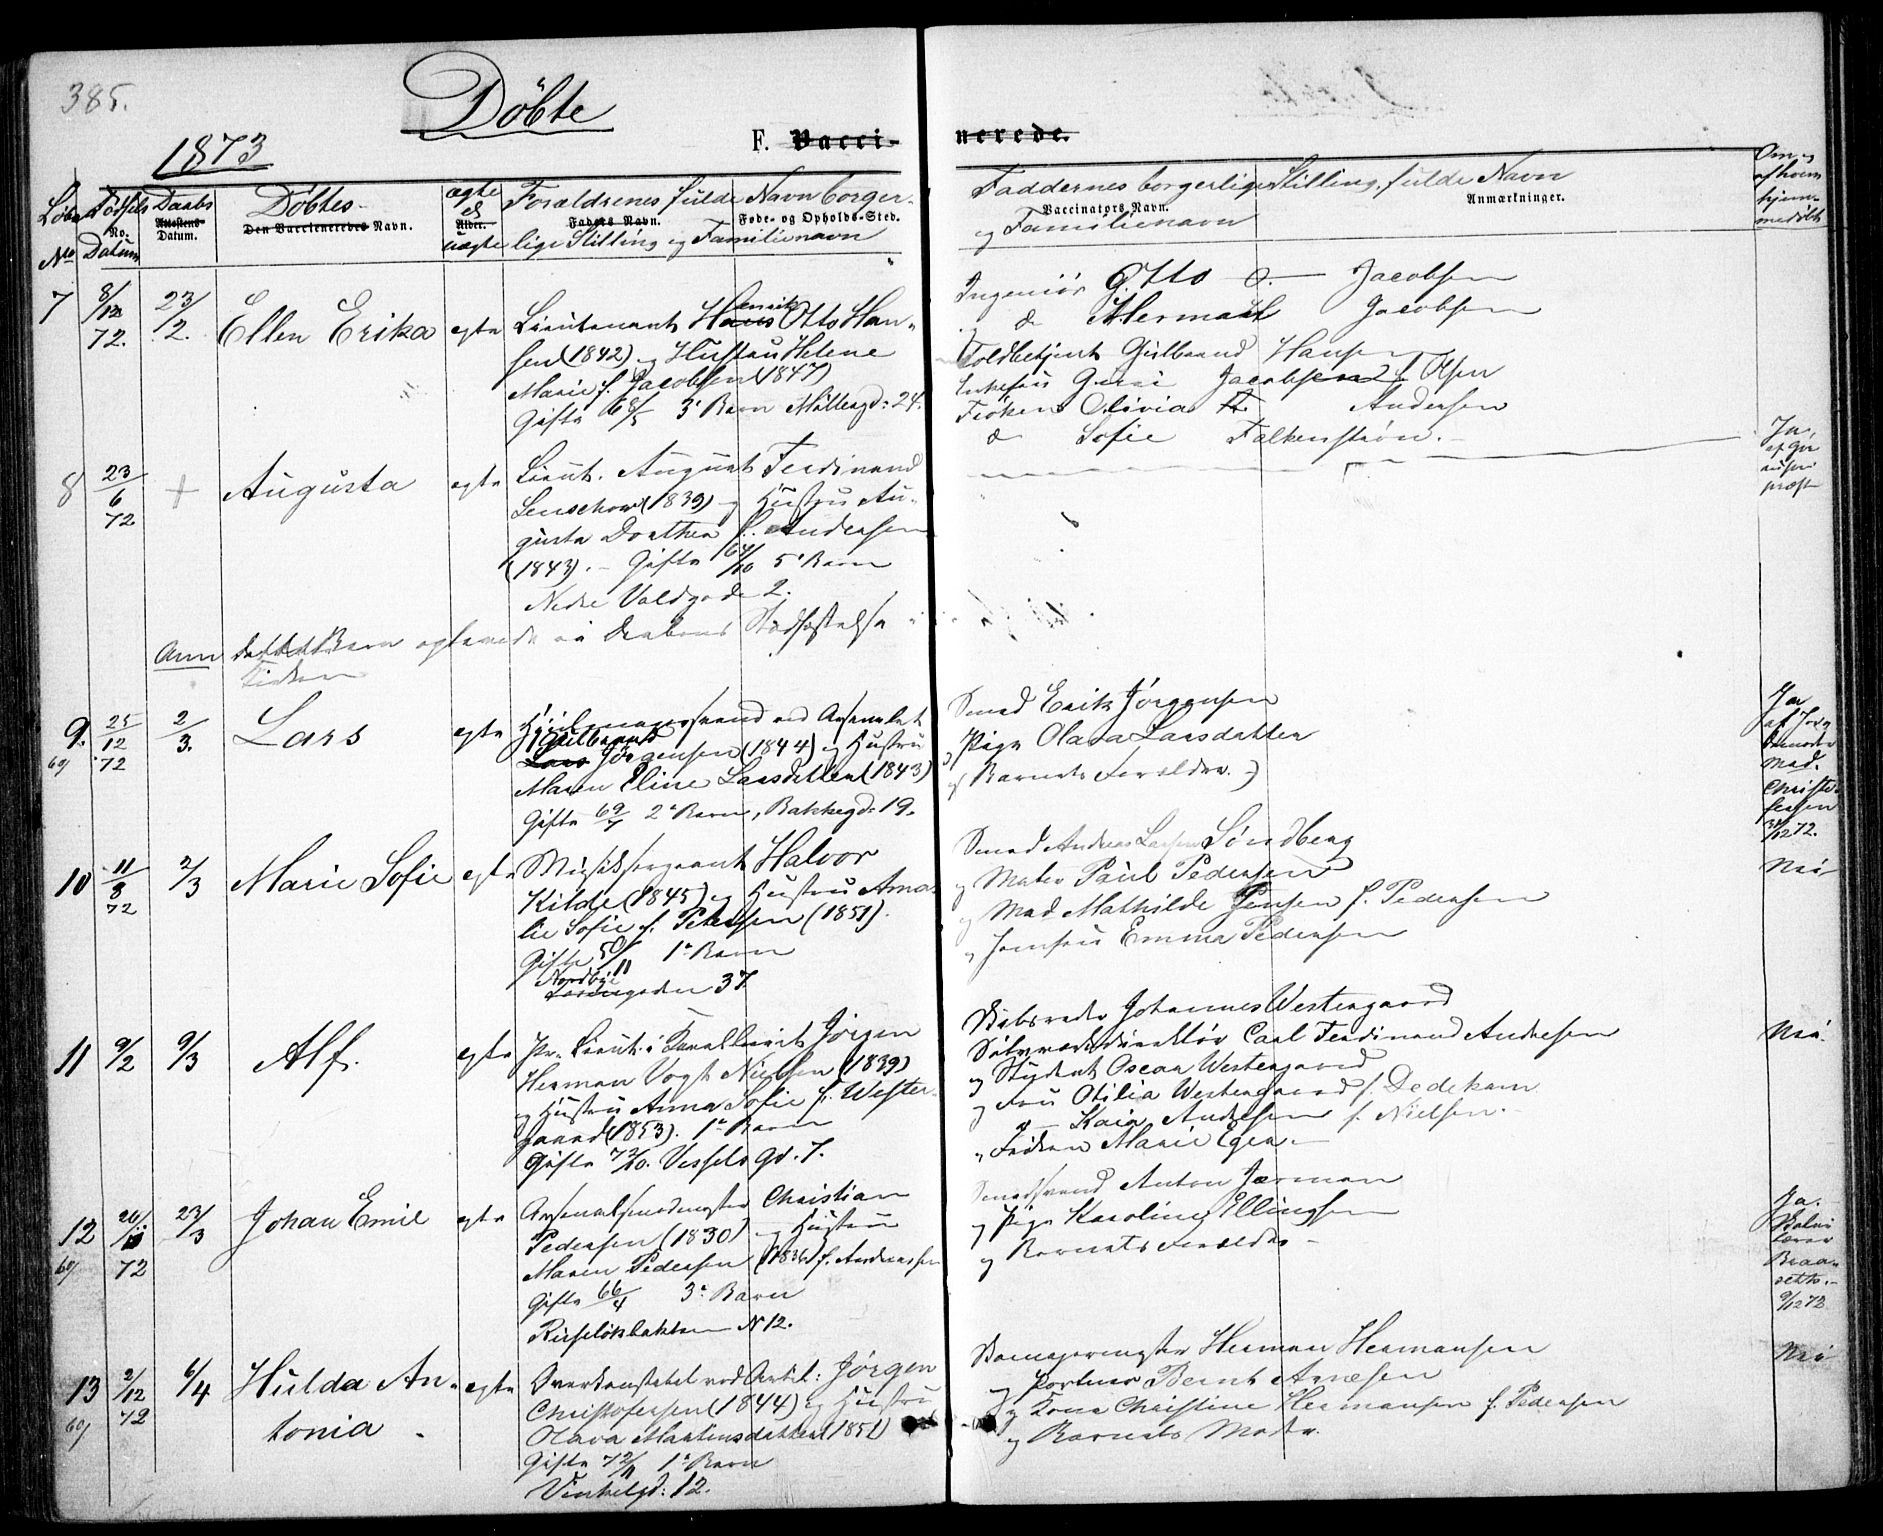 385.
Döbte
1873
F. Vacci-
nerede.
Løbe No
Fødsels Datum
No.
Daabs
Attestens
Datum.
Döbtes
Den Vaccineredes Navn.
ægte el uægte
Alder.
Forældrenes fulde Navn borger-
Faders Navn.
Føde- og Opholds-Sted.
lige Stilling og Familienavn
Faddernes borgerlige Stilling, fulde Navn
Vaccinators Navn.
Anmærkninger.
og Familienavn
Om og
af hvem
hjem-
medöbt
7 8/12 72. 23/2. Ellen Erika egte
Lieutenant Hans Henrik Otto Han-
sen (1842) og Hustru Helene
Marie f. Jacobsen (1847)
Gifte 68/5 3' Barn Möllergd: 24.
Ingeniör Otto Jacobsen
do Herman Jacobsen
Toldbetjent Gulbrand Hansen
Jacobsen f. Olsen
Fröken Olivia Andersen
do Sofie Falkenström.
8 23/6 72 + Augusta egte
Lieut. August Ferdinand
Lenschow (1839) og Hustru Au-
gusta Dorthea f. Andersen
(1843). - Gifte 64/10 5' Barn
Nedre Voldgade 2.
Ja,
præst
Anm Barn Daabens Stadfæstelse i
Kirken
9. 25/12 72 2/3. Lars egte
69
ved Arsenalet
Gulbrand
Lars Jörgensen (1844) og Hustru
Maren Eline Larsdatter (1843)
Gifte 69/7 2' Barn, Bakkegd: 19.
Smed Erik Jörgensen
Pige Olava Larsdatter
og Barnets Forældre.
Ja
af Jord
demoder
Mad.
Christo-
fersen
31/12 72.
10 11/8 72 2/3 Marie Sofie egte
Musiksergeant Halvor
Kilde (1845) og Hustru Ama-
lie Sofie f. Petersen (1851).
Gifte 1' Barn
Nordbye
gaden 37
Smed Andreas Larsen Söndberg
og Maler Paul Pedersen
og Mad Mathilde Jensen f. Pedersen
og Jomfru Emma Pedersen
Nei
11 9/2 9/3 Alf. egte
Pr. Lieut. i Jörgen
Herman Vogt Nielsen (1839)
og Hustru Anna Sofie f. Wester-
gaard (1853). 1' Barn
Gifte 72/10. Vessels Gd. 7.
Johannes Westergaard
Sölvværksdirektör Carl Ferdinand Andresen
og Student Oscar Westergaard
og Fru Otilia Westergaard f. Dedekam
og - Kaia Andresen f. Nielsen.
og Fröken Marie Eger.
Nei.
12 20/11 72 23/3 Johan Emil egte
69
Arsenalsmedmester Christian
Pedersen (1830) og Hustru
Maren Pedersen (1836) f. Andreassen
Gifte 66/4 3' Barn
Ruselökbakken N 12.
Anton Jerman
og Pige Karoline Ellingsen
og Barnets Forældre
Ja.
Skole
lærer
Braa-
9/12 72
13 2/12 72 6/4 Hulda An- egte
tonia
69
Overkonstabel ved Artil: Jörgen
Christofersen (1844) og Hustru
Olava Martinsdatter (1851)
Gifte 72/11 1' Barn
Vinkelgd: 12.
Skomagermester Herman Hermansen
og Portner Bernt Arnesen
og Kone Christine Hermansen f. Pedersen
og Barnets Moder.
Nei